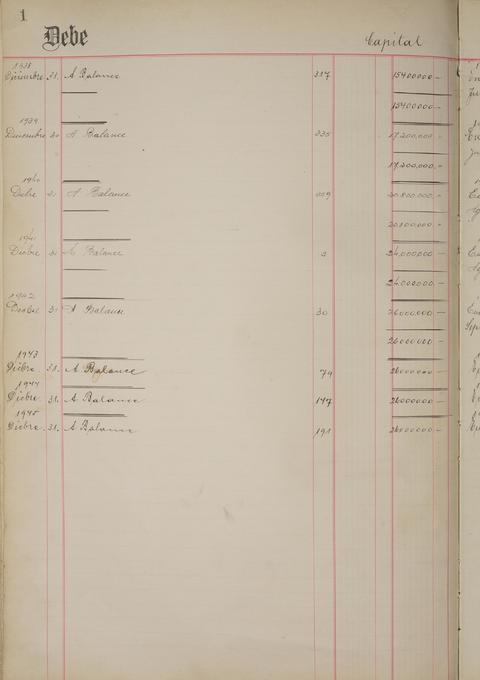 1
Debe Capital
1938
Diciembre 31. A Balance 317 15400000 -
15400000 -
1939
Diciembre 31 A Balance 17,200,000 -
17,200,000 -
1940
Dcbre 31 A Balance 20,800,000 -
20,800,000 -
1941
Dicbre 31 A Balance 24,000,000 -
24,000,000 -
1942
Dicbre 31 A Balance 30 26000000 -
26000000 -
1943
Dicbre. 31. A Balance 79 26000000 -
1944
Dicbre. 31. A Balance 147 26000000 -
1945
Dicbre. 31. A Balance 191 26000000 -